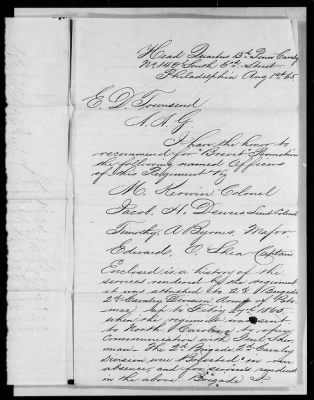 Head Quarters 13th Penn Cavly
No 142 South 6th Street
Philadelphia Aug 1st 65
E. D. Townsend
A. A. G.
I have the honor to
recommend for "Brevet" Promotion
the following named Officers
of this Regiment Viz
M. Kerwin Colonel
Jacob H. Dewees Lieut Colonel
Timothy A Byrnes Major
Edward C. Shea Captain
Enclosed is a history of the
services rendered by the regiment
it was attached to 2d Brigade
2d Cavalry Division Army of Poto
mac up to Feby 17th 1865
when the regiment was sent
to North Carolina to open
Communication with Genl Sher
man The 2d Brigade 2d Cavalry
Division were "Brevetted" in our
absence, and for services rendered
in the above Brigade I